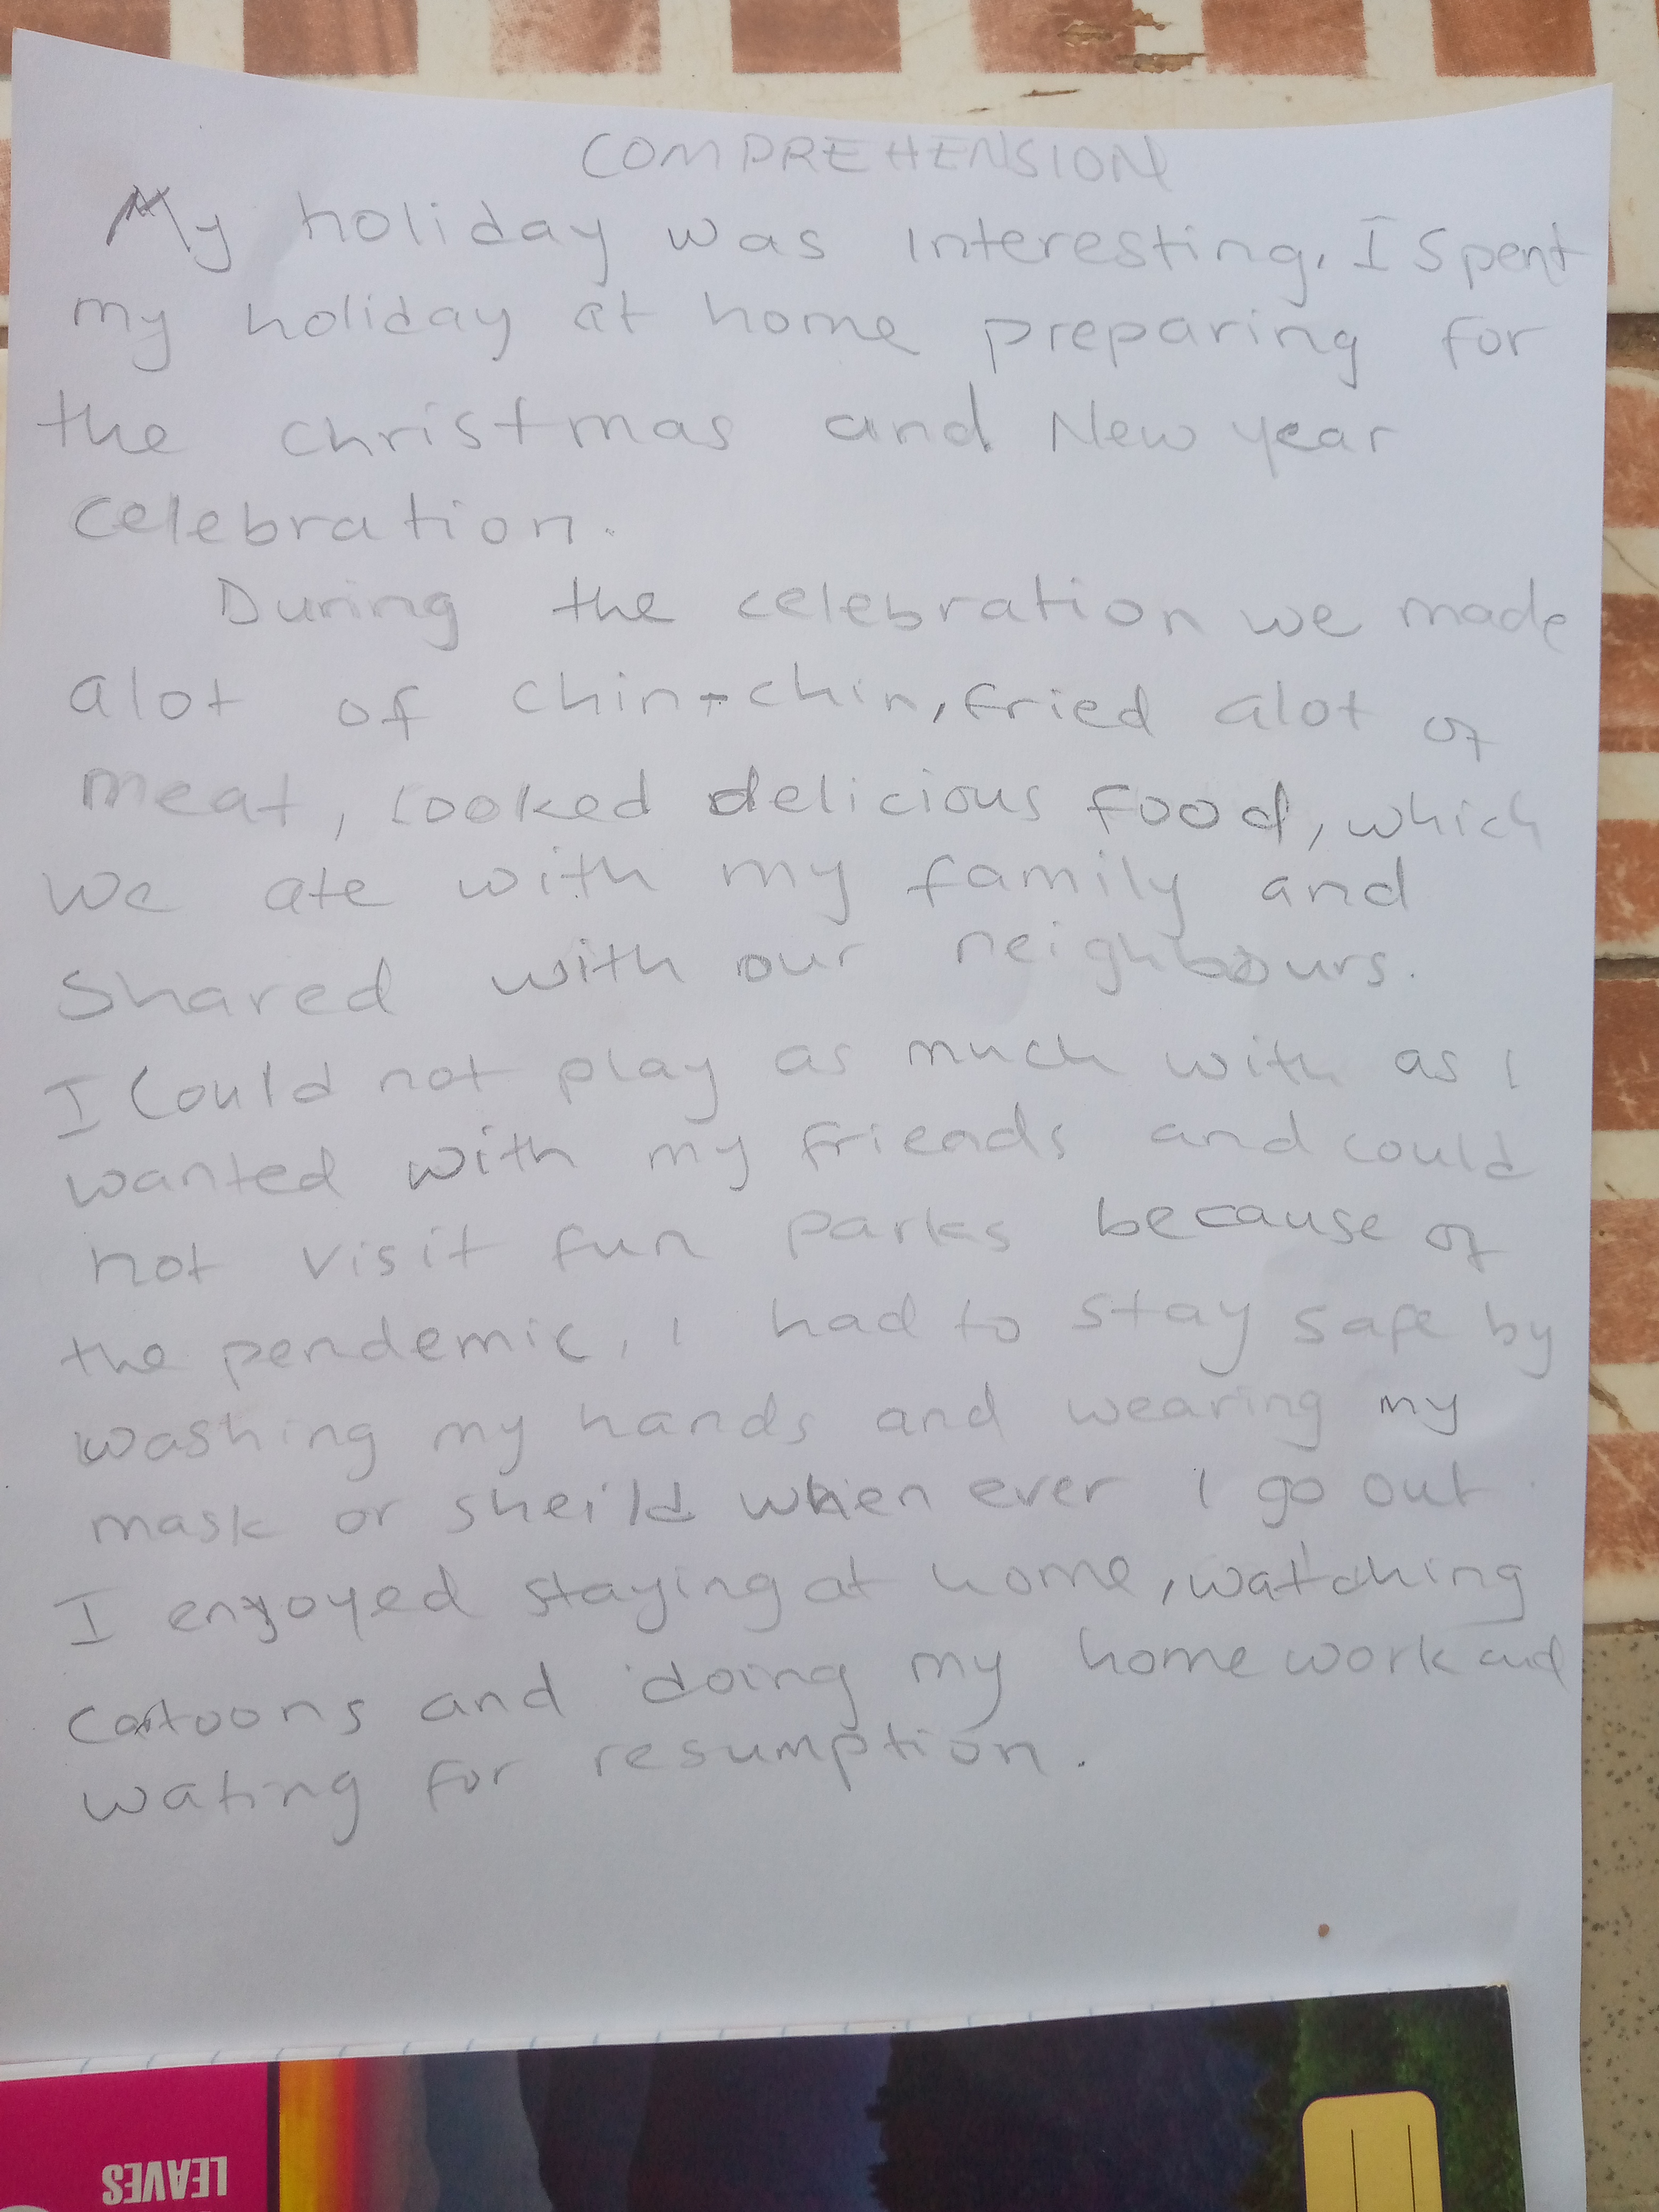 COMPREHENSION
My holiday was interesting. I spent
my holiday at home preparing for
the christmas and New year
celebration.
During the celebration we made
alot of chin-chin, fried alot of
meat, cooked delicious food, which
we ate with my family and
shared with our neighbours.
I could not play as much with as I
wanted with my friends and could
not visit fun parks because of
the pendemic, I had to stay safe by
washing my hands and wearing my
mask or sheild when ever I go out.
I enjoyed staying at home, watching
cartoons and doing my home work and
wating for resumption.
LEAVES